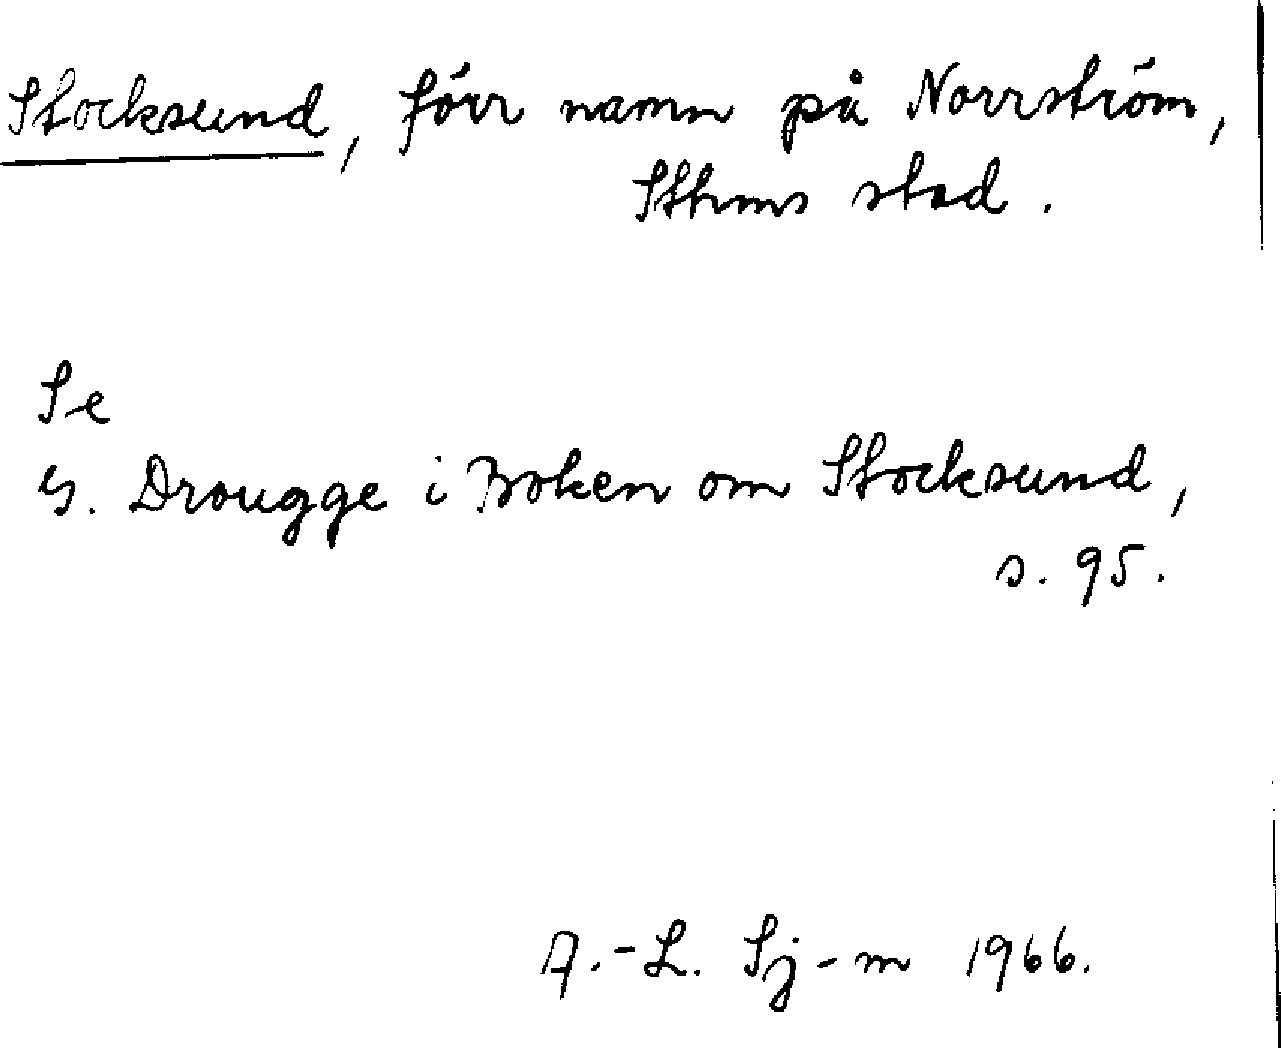 Stocksund, förr namn på Norrström,
Sthms stad.
Se
G. Drougge i Boken om Stocksund,
s. 95.
A.-L. Sj-m 1966.